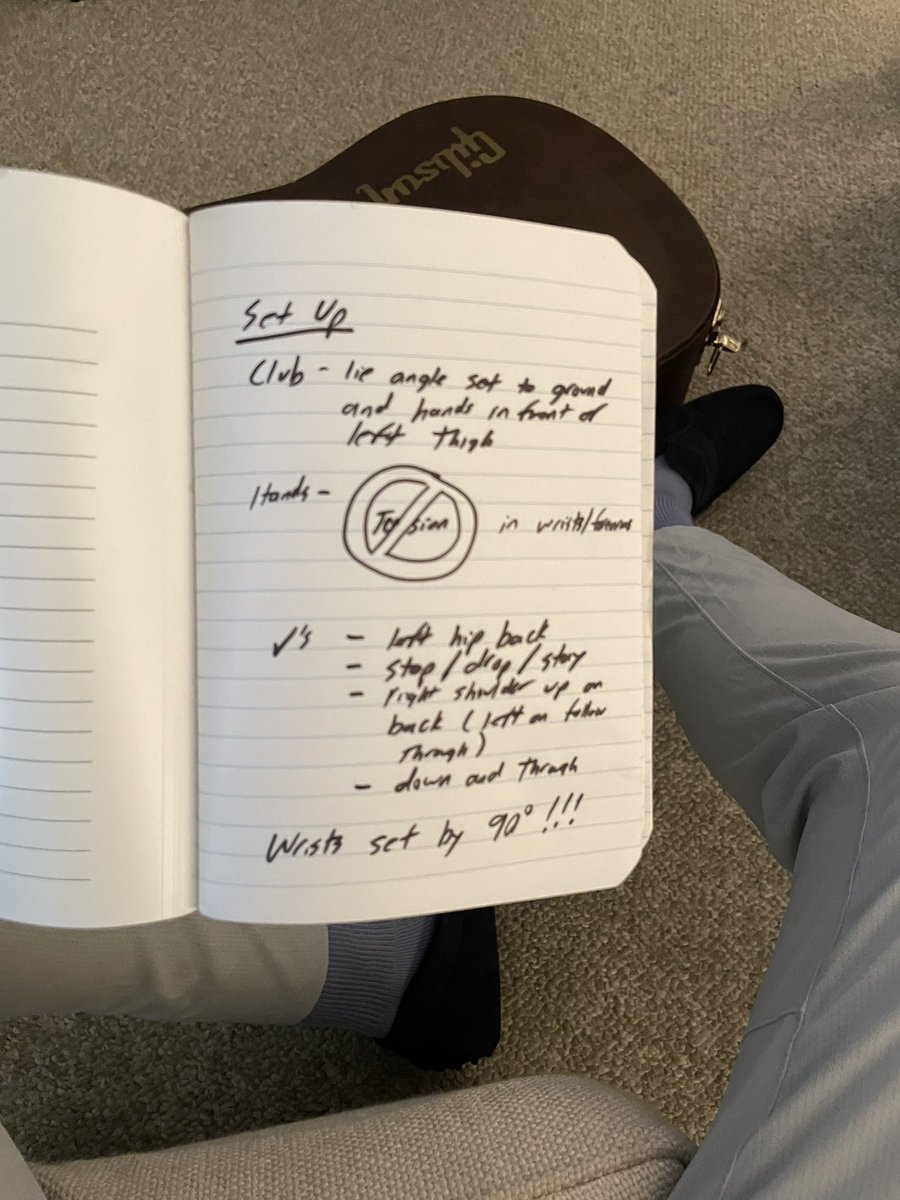 Gibson
Set Up
Club - lie angle set to ground
and hands in front of
left thigh
Hands - Tension in wrists/forearms
✓'s - left hip back
- stop/drop/story
- right shoulder up on
back (left on follow
through)
- down and through
Wrists set by 90° !!!